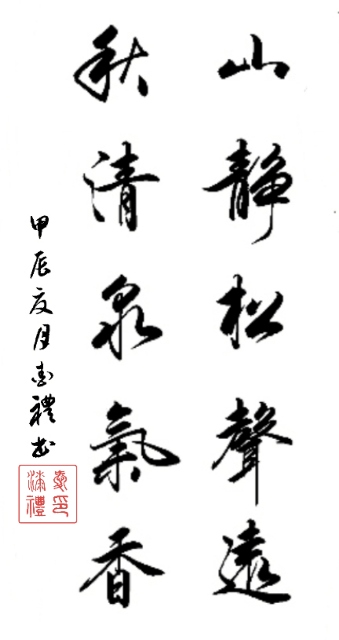 山靜松聲遠
秋清泉氣香
甲辰夏月
禮書